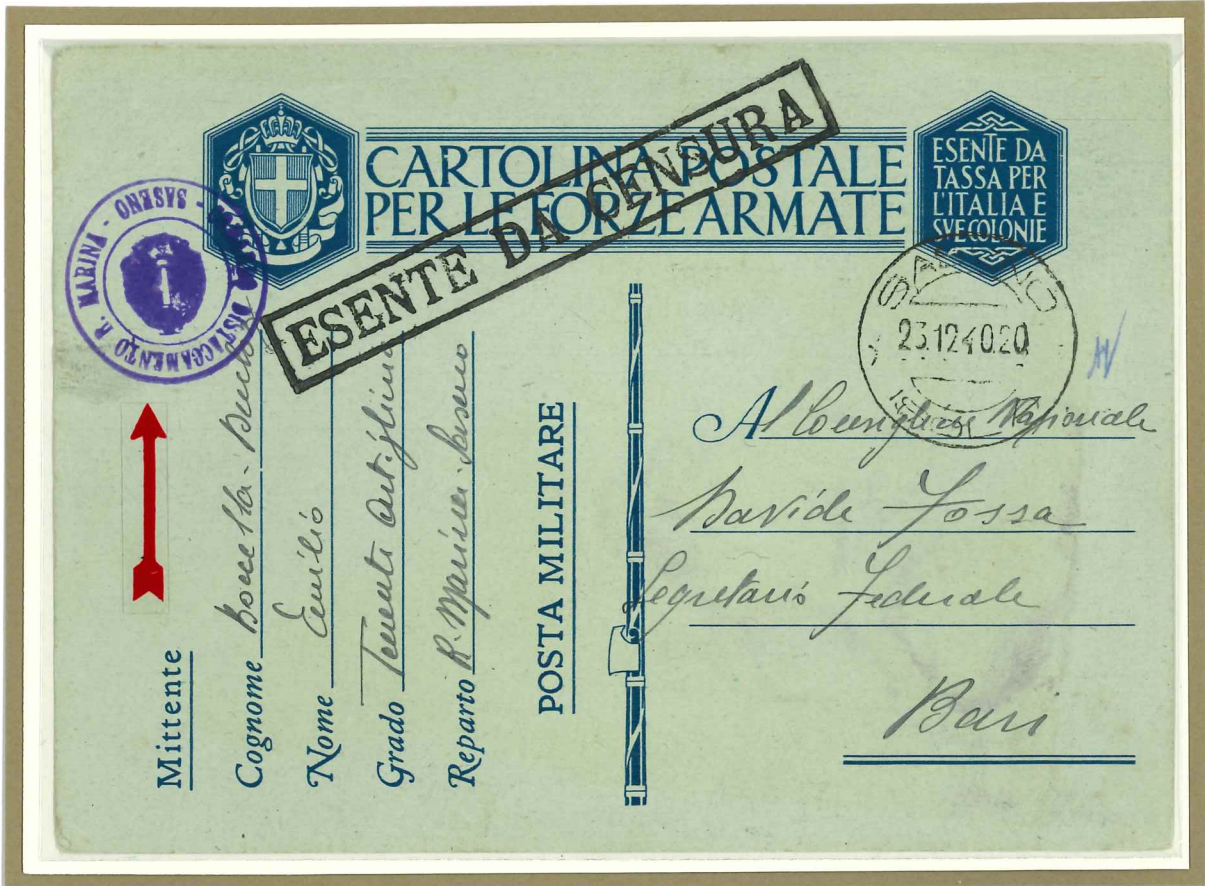 CARTOLINA POSTALE
PER LE FORZE ARMATE
ESENTE DA
TASSA PER
L'ITALIA E
SVE COLONIE
ESENTE DA CENSURA
DISTACCAMENTO R. MARINA - SASENO -
SASENO
23.12.40.20
Mittente
Cognome
Nome Emilio
Grado Tenente Artiglieria
Reparto R. Marina Saseno
POSTA MILITARE
Al Consigliere Nazionale
Davide Fossa
Segretario Federale
Bari